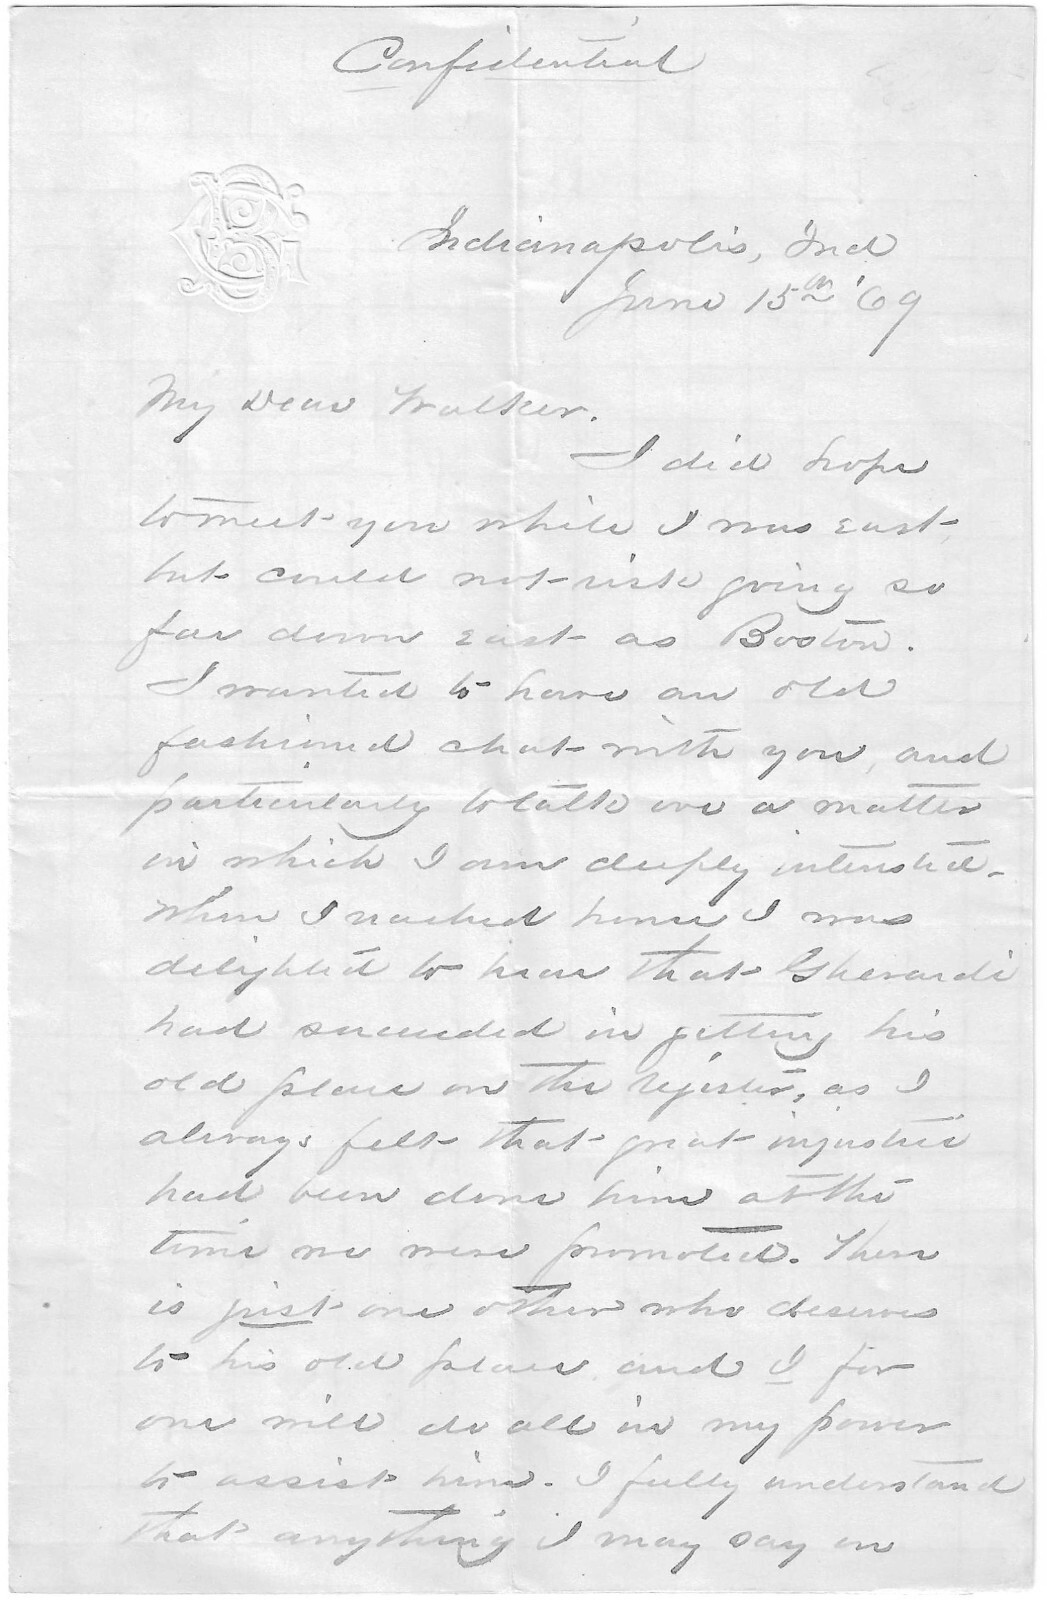 Confidential
Indianapolis, Ind
June 15th '69
My Dear Walker.
I did hope
to meet you while I was east,
but could not risk going so
far down east as Boston.
I wanted to have an old
fashioned chat with you, and
particularly to talk over a matter
in which I am deeply interested.
When I reached home I was
delighted to hear that Gherardi
had succeeded in getting his
old place on the register, as I
always felt that great injustice
had been done him at the
time we were promoted. There
is just one other who deserves
to his old place, and I for
one will do all in my power
to assist him. I fully understand
that anything I may say on